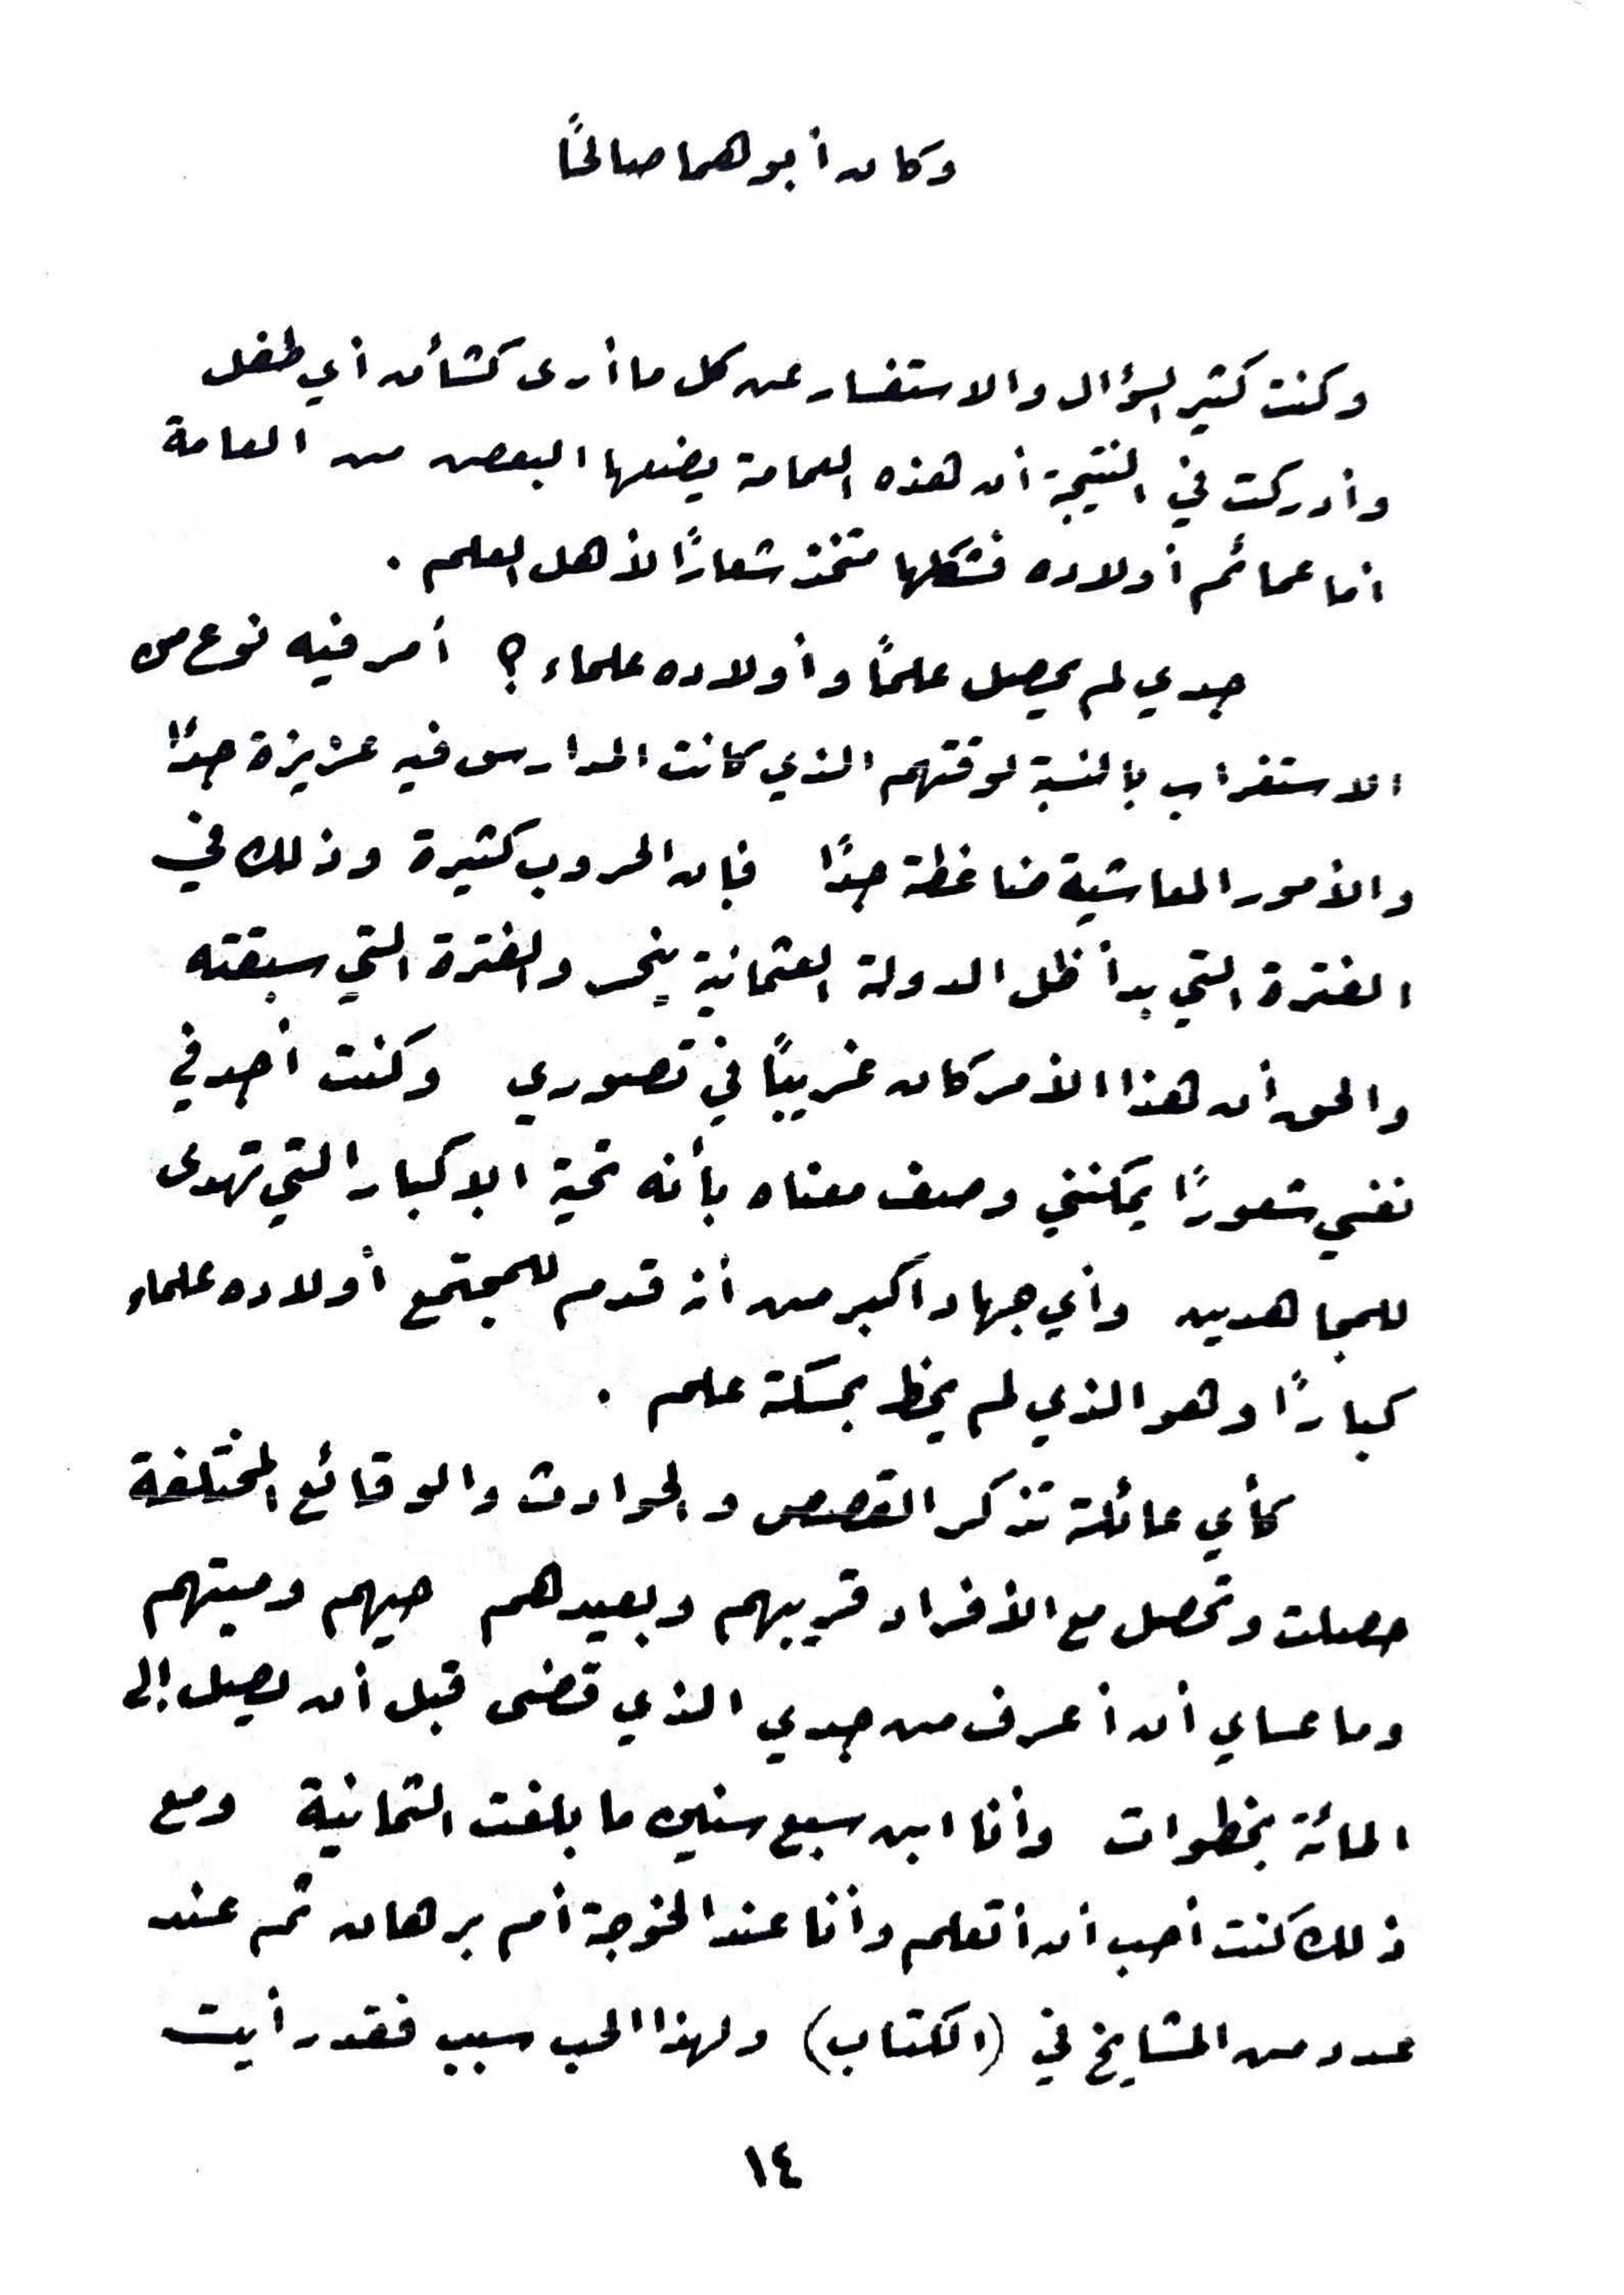 وكان أبوهما صالحًا
وكنت كثير السؤال والاستفسار عن كل ما أرى كشأن أي طفل
وأدركت في النتيجة أن هذه العمامة يضعها البعض من العامة
أما عمائم أولاده فشكلها متخذ شعارًا لأهل العلم .
جدي لم يحصل علمًا وأولاده علماء ؟ أمر فيه نوع من
الاستغراب بالنسبة لوقتهم الذي كانت المدارس فيه عزيزة جدًا
والأمور المعاشية ضاغطة جدًا فإن الحروب كثيرة وذلك في
الفترة التي بدأ ظل الدولة العثمانية ينحسر والفترة التي سبقته
والحق أن هذا الأمر كان غريبًا في تصوري وكنت أجد في
نفسي شعورًا يمكنني وصف معناه بأنه تحية الإكبار التي تهدى
للمجاهدين وأي جهاد أكبر من أن قدم للمجتمع أولاده علماء
كبارًا وهو الذي لم يحظ بمسكة علم .
كأي عائلة تذكر القصص والحوادث والوقائع المختلفة
حصلت وتحصل مع الأفراد قريبهم وبعيدهم حيهم وميتهم
وما عساي أن أعرف من جدي الذي قضى قبل أن يصل إلى
المائة بخطوات وأنا ابن سبع سنين ما بلغت الثمانية ومع
ذلك كنت أحب أن أتعلم وأنا عند الخوجة أم برهان ثم عند
عدد من المشايخ في (الكتاب) ولهذا الحب سبب فقد رأيت
١٤